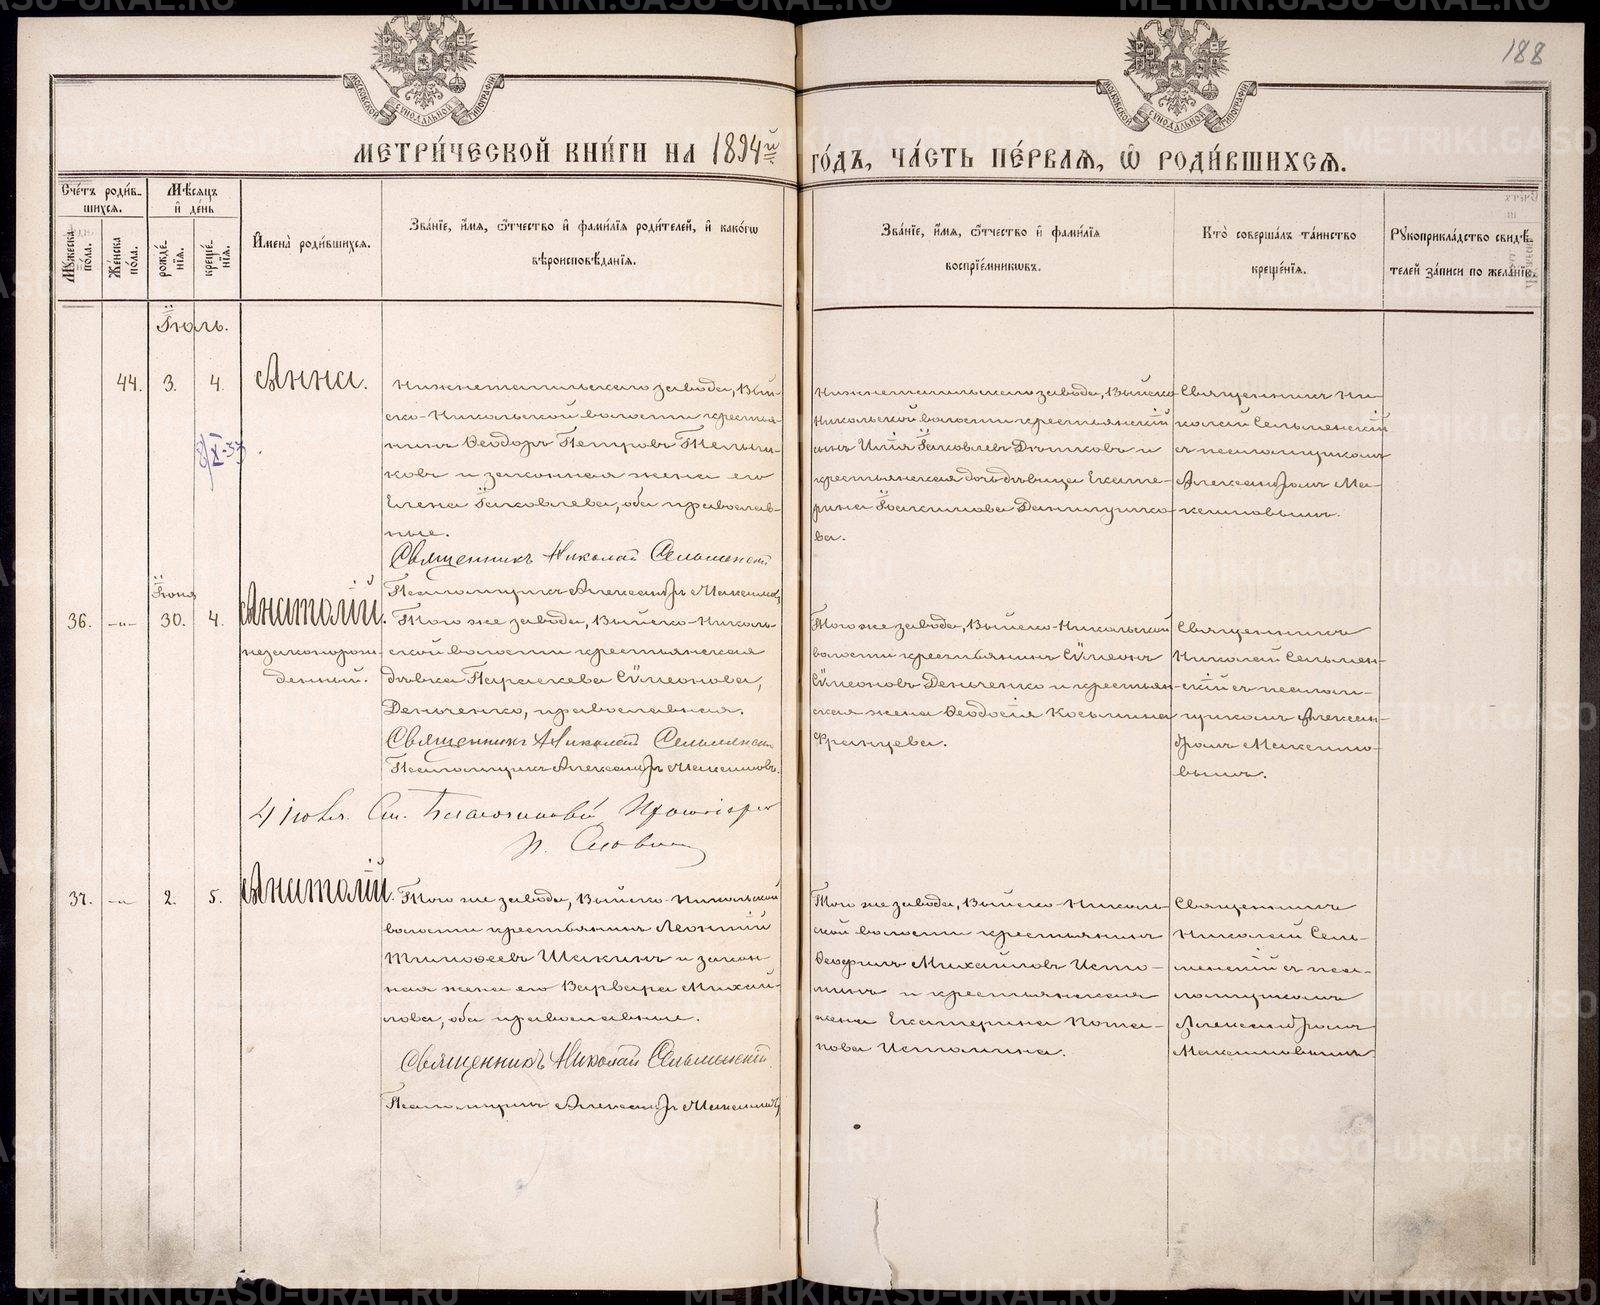 188
МОСКОВСКОЙ СѴНОДАЛЬНОЙ ТИПОГРАФІИ
МОСКОВСКОЙ СѴНОДАЛЬНОЙ ТИПОГРАФІИ
МЕТРИ́ЧЕСКОЙ КНИ́ГИ НА 1894й ГО́ДЪ, ЧА́СТЬ ПЕ́РВАЯ, Ѡ҆ РОДИ́ВШИХСЯ.
Сче́тъ роди́в-
шихся.
Мѣсяцъ
и҆ де́нь
Мꙋ́жеска по́ла.
Же́нска по́ла.
рожде́-
нїя.
креще́-
нїя.
И҆мена̀ роди́вшихся.
Зва́нїе, и҆́мя, ѻ҆́тчество и҆ фами́лїя роди́телей, и҆ како́гѡ
вѣроисповѣ́данїя.
Зва́нїе, и҆́мя, ѻ҆́тчество и҆ фами́лїя
воспрїе́мникѡвъ.
Кто̀ соверша́лъ та́инство
креще́нїя.
Рꙋкоприкла́дство свидѣ́-
телей за́писи по жела́нїю.
Іюль.
44. 3. 4. Анна.
Нижнетагильскаго завода, Вый-
ско-Никольской волости крестья-
нинъ Ѳеодоръ Петровъ
и законная жена его
Елена Іаковлева, оба православ-
ные.
Священникъ Николай Сельменскій
Псаломщикъ Александръ Максимовъ
Нижнетагильскаго завода, Выйско
Никольской волости крестьянскій
сынъ Илія Іаковлевъ и
крестьянская дочь дѣвица Екате-
рина Іоакимова Данилушко-
ва.
Священникъ Ни-
колай Сельменскій
съ псаломщикомъ
Александромъ Ма-
ксимовымъ.
Іюня
36. —"— 30. 4. Анатолій.
незаконорож-
денный.
Того же завода, Выйско-Николь-
ской волости крестьянская
дѣвка Параскева Сѵмеонова
Деньченко, православная.
Священникъ Николай Сельменскій
Псаломщикъ Александръ Максимовъ.
Того же завода, Выйско-Никольской
волости крестьянинъ Сѵмеонъ
Сѵмеоновъ Деньченко и крестьян-
ская жена Ѳеодосія Косьмина
Францева.
Священникъ
Николай Сельмен-
скій съ псалом-
щикомъ Алексан-
дромъ Максимо-
вымъ.
4 іюля.
37. —"— 2. 5. Анатолій.
Того же завода, Выйско-Никольской
волости крестьянинъ Леонтій
Тимоѳеевъ Шакинъ и закон-
ная жена его Варвара Михай-
лова, оба православные.
Священникъ Николай Сельменскій.
Псаломщикъ Александръ Максимовъ
Того же завода, Выйско-Николь-
ской волости крестьянинъ
Ѳеофилъ Михайловъ Исто-
минъ и крестьянская
жена Екатерина Пота-
пова Истомина.
Священникъ
Николай Сель-
менскій съ пса-
ломщикомъ
Александромъ
Максимовымъ.
METRIKI.GASO-URAL.RU